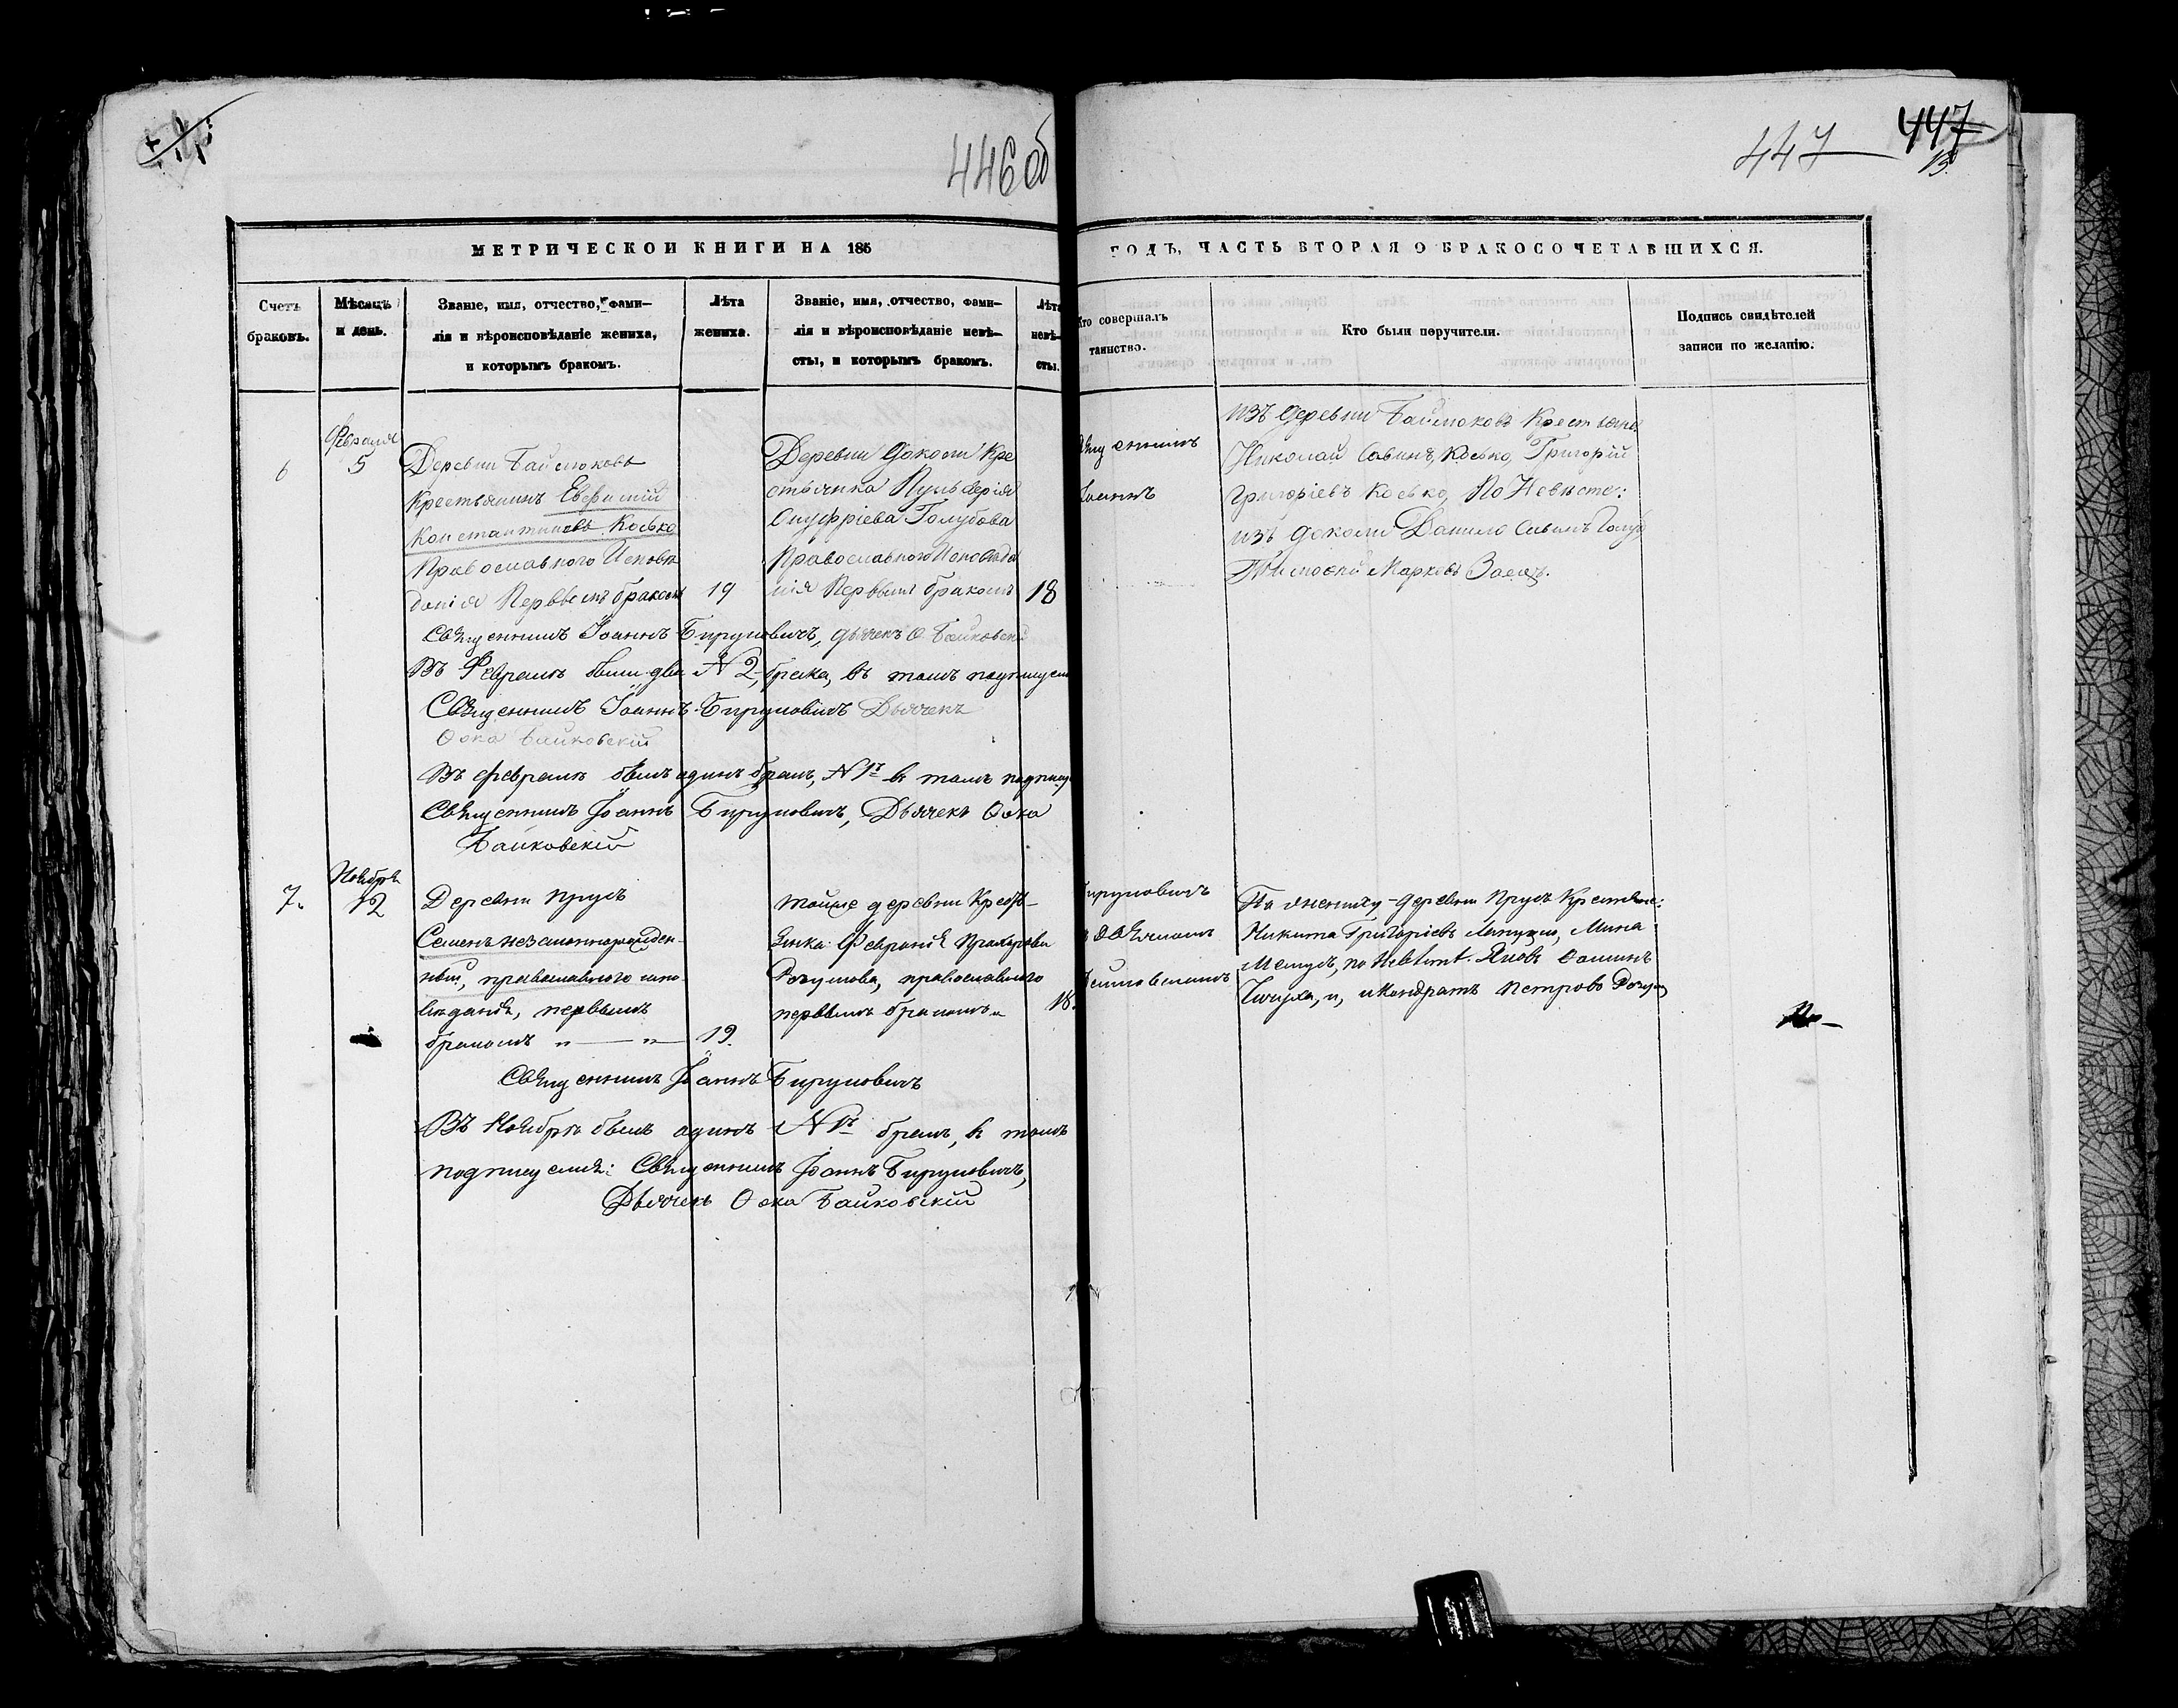 446 об
447
447
МЕТРИЧЕСКОЙ КНИГИ НА 185
ГОДЪ, ЧАСТЬ ВТОРАЯ О БРАКОСОЧЕТАВШИХСЯ.
Счетъ
браковъ.
Мѣсяцъ
и день.
Званіе, имя, отчество, фами-
лія и вѣроисповѣданіе жениха,
и которымъ бракомъ.
Лѣта
жениха.
Званіе, имя, отчество, фами-
лія и вѣроисповѣданіе невѣ-
сты, и которымъ бракомъ.
Лѣта
невѣ-
сты.
Кто совершалъ
таинство.
Кто были поручители.
Подпись свидѣтелей
записи по желанію.
6
Февраля
5
Деревни Баймоковъ
Крестьянинъ Евфимій
Константиновъ Косько
Православнаго Исповѣ
данія Первымъ бракомъ
19
Деревни Докоми Кре
стьянка Пульхерія
Онуфріева Голубова
Православного Исповѣда
нія Первымъ бракомъ
18
Священникъ
Іоаннъ
изъ деревни Баймоковъ Крестьяне
Николай Савинъ Косько, Григорій
Григоріевъ Косько, По Невѣсте:
изъ Докоми Данило Савинъ
Тимофей Марковъ Заяцъ.
Священникъ Іоаннъ Бируковичъ, дьячекъ Ѳ. Байковскій
Въ Февралѣ были два № 2, брака, въ томъ подпишуемъ
Священникъ Іоаннъ Бируковичъ Дьячекъ
Ѳока Байковскій
Въ февралѣ былъ одинъ бракъ, № 1й въ томъ
Священникъ Іоаннъ Бируковичъ, Дьячекъ Ѳока
Байковскій
7.
Ноября
12
Деревни Прусъ
Семенъ незаконнорожден-
ный, православного испо
вѣданія, первымъ
бракомъ " — " —
19.
тойже деревни Кресть-
янка Февронія Прохорова
православного
первымъ бракомъ "
18.
Бируковичъ
По жениху - деревни Прусъ Крестьяне:
Никита Григоріевъ Мина
по невѣстѣ. Яковъ Ѳоминъ
и, Кондратъ Петровъ
Священникъ Іоаннъ Бируковичъ
Въ Ноябрѣ былъ одинъ № 1й бракъ, въ томъ
подпишемся: Священникъ Іоаннъ Бируковичъ,
Дьячекъ Ѳока Байковскій